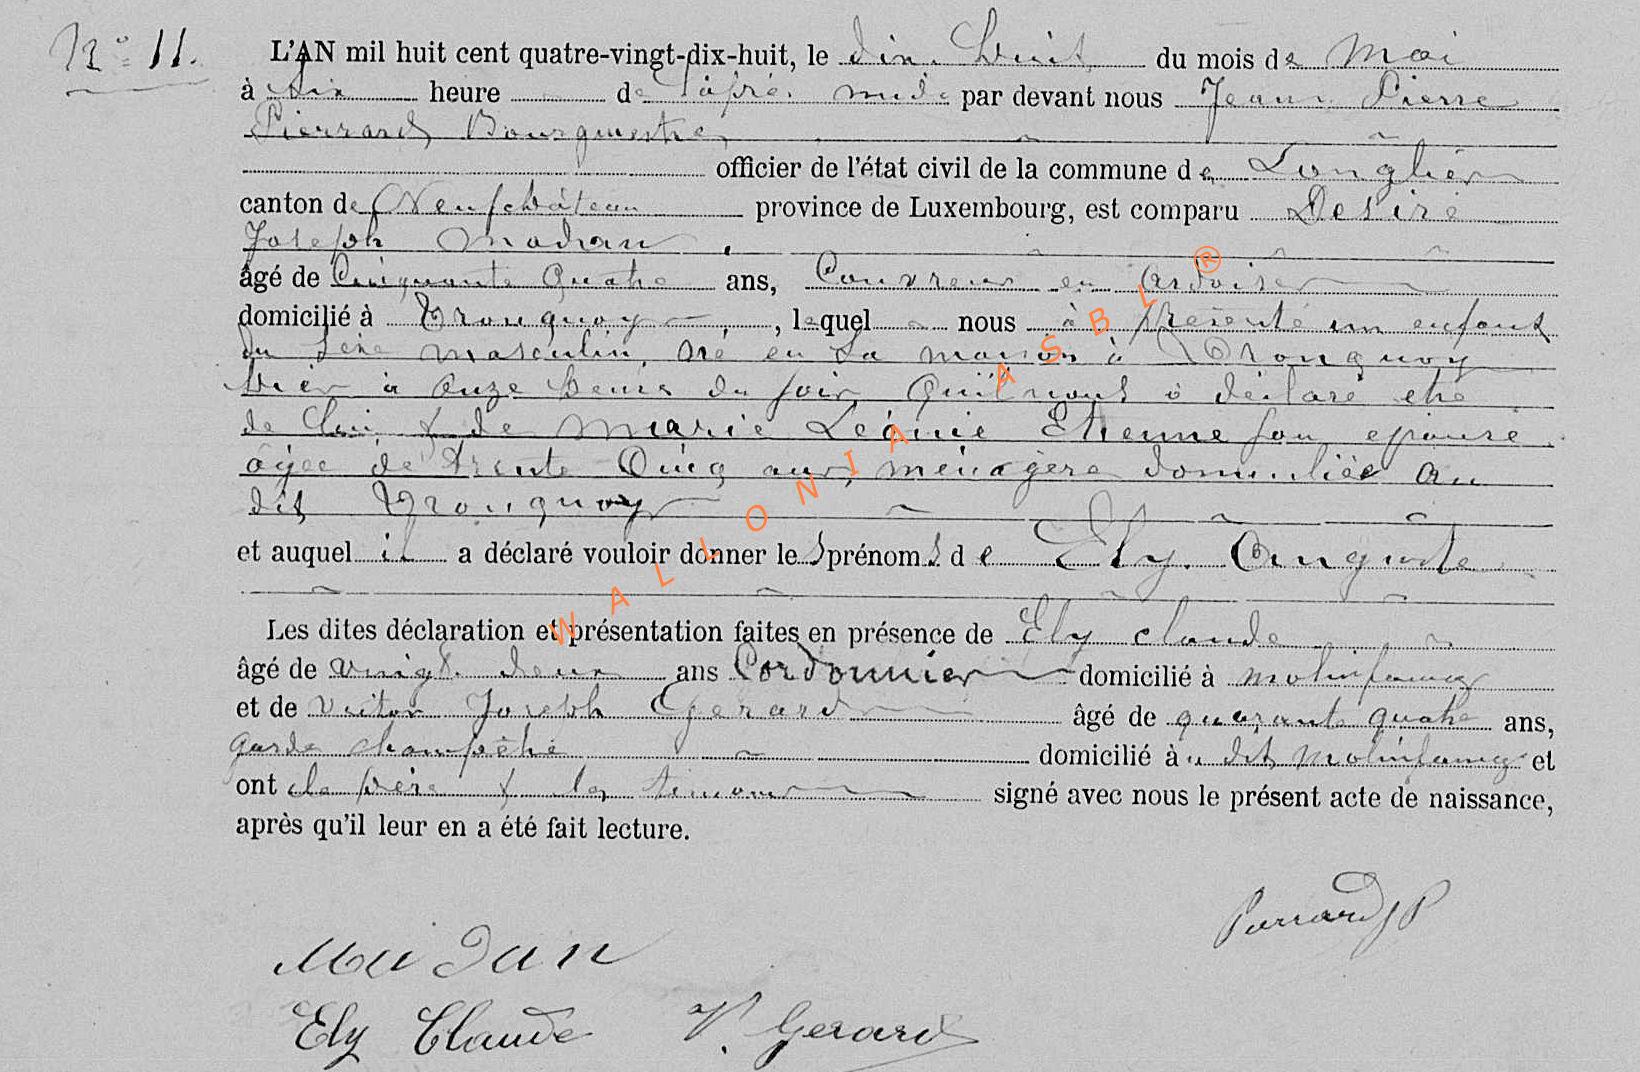 N° 11.
L'AN mil huit cent quatre-vingt-dix-huit, le dix huit du mois de Mai
à six heure de l'après midi par devant nous Jean Pierre
Pierrard Bourgmestre
officier de l'état civil de la commune de Longlier
canton de Neufchâteau province de Luxembourg, est comparu Désiré
Joseph Madran,
âgé de Cinquante Quatre ans, Couvreur en Ardoise
domicilié à Tronquoy, lequel nous à présenté un enfant
du sexe masculin, né en sa maison à Tronquoy
hier à Onze heures du soir Qu'il nous à déclaré etre
de lui & de Marie Léonie Etienne son epouse
agée de trente Cinq ans, ménagère domiciliée au
dit Tronquoy
et auquel il a déclaré vouloir donner les prénoms de Ely Auguste
Les dites déclaration et présentation faites en présence de Ely Claude
âgé de vingt deux ans Cordonnier domicilié à Molinfaing
et de Victor Joseph Gerard âgé de quarante quatre ans,
garde champêtre domicilié à u dit Molinfaing et
ont le père & les témoins signé avec nous le présent acte de naissance,
après qu'il leur en a été fait lecture.
Pierrard JP
Madran
Ely Claude V. Gerard
WALLONIA ASBL ®